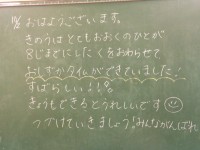 11/6 おはようございます。
きのうはとてもおおくのひとが
8じまでにしたくをおわらせて
おしずかタイムができていました!
すばらしい!!
きょうもできるとうれしいです
つづけていきましょう!みんながんばれ